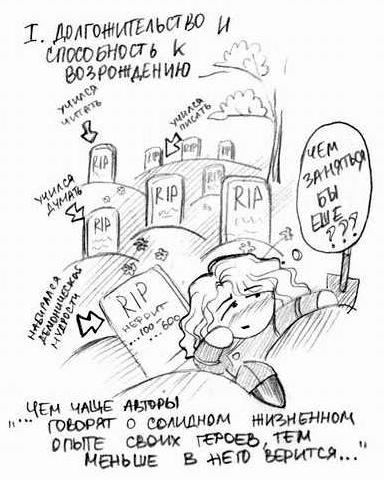 I. ДОЛГОЖИТЕЛЬСТВО И
СПОСОБНОСТЬ К
ВОЗРОЖДЕНИЮ
УЧИЛСЯ
ЧИТАТЬ
УЧИЛСЯ
ПИСАТЬ
RIP
RIP
RIP
RIP
УЧИЛСЯ
ДУМАТЬ
RIP
RIP
RIP
ЧЕМ
ЗАНЯТЬСЯ
БЫ
ЕЩЕ
???
НАБИРАЛСЯ
ДЕМОНИЧЕСКОЙ
МУДРОСТИ
RIP
...100 - 600
"...ЧЕМ ЧАЩЕ АВТОРЫ
ГОВОРЯТ О СОЛИДНОМ ЖИЗНЕННОМ
ОПЫТЕ СВОИХ ГЕРОЕВ, ТЕМ
МЕНЬШЕ В НЕГО ВЕРИТСЯ..."